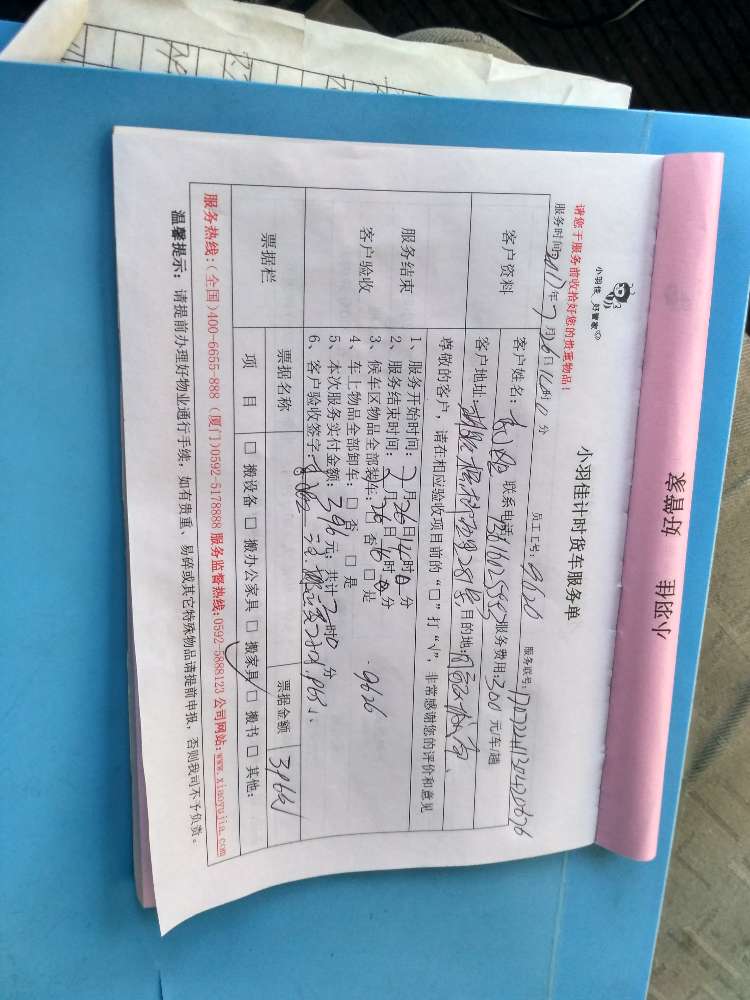 小羽佳 好管家
小羽佳 好管家
小羽佳计时货车服务单
请您于服务前收拾好您的贵重物品!
服务时间: 2017年7月26日 时 分 员工工号: 9626 服务联号:
客户资料
客户姓名: 联系电话: 服务费用: 300 元/车/趟
客户地址: 目的地:
服务结束
客户验收
尊敬的客户,请在相应验收项目前的“□”打“√”,非常感谢您的评价和意见
1、服务开始时间: 7月26日14时0分
2、服务结束时间: 7月26日16时0分
3、候车区物品全部装车: □ 否 □ 是 9626
4、车上物品全部卸车: □ 否 □ 是
5、本次服务实付金额: 396元; 共计2时0分
6、客户验收签字:
票据栏
票据名称 票据金额 396元
项 目 □ 搬设备 □ 搬办公家具 □ 搬家具 □ 搬书 □ 其他:
服务热线:(全国)400-6655-888 (厦门)0592-5178888 服务监督热线:0592-5888123 公司网站:www.xiaoyujia.com
温馨提示: 请提前办理好物业通行手续,如有贵重、易碎或其它特殊物品请提前申报,否则我司不予负责。